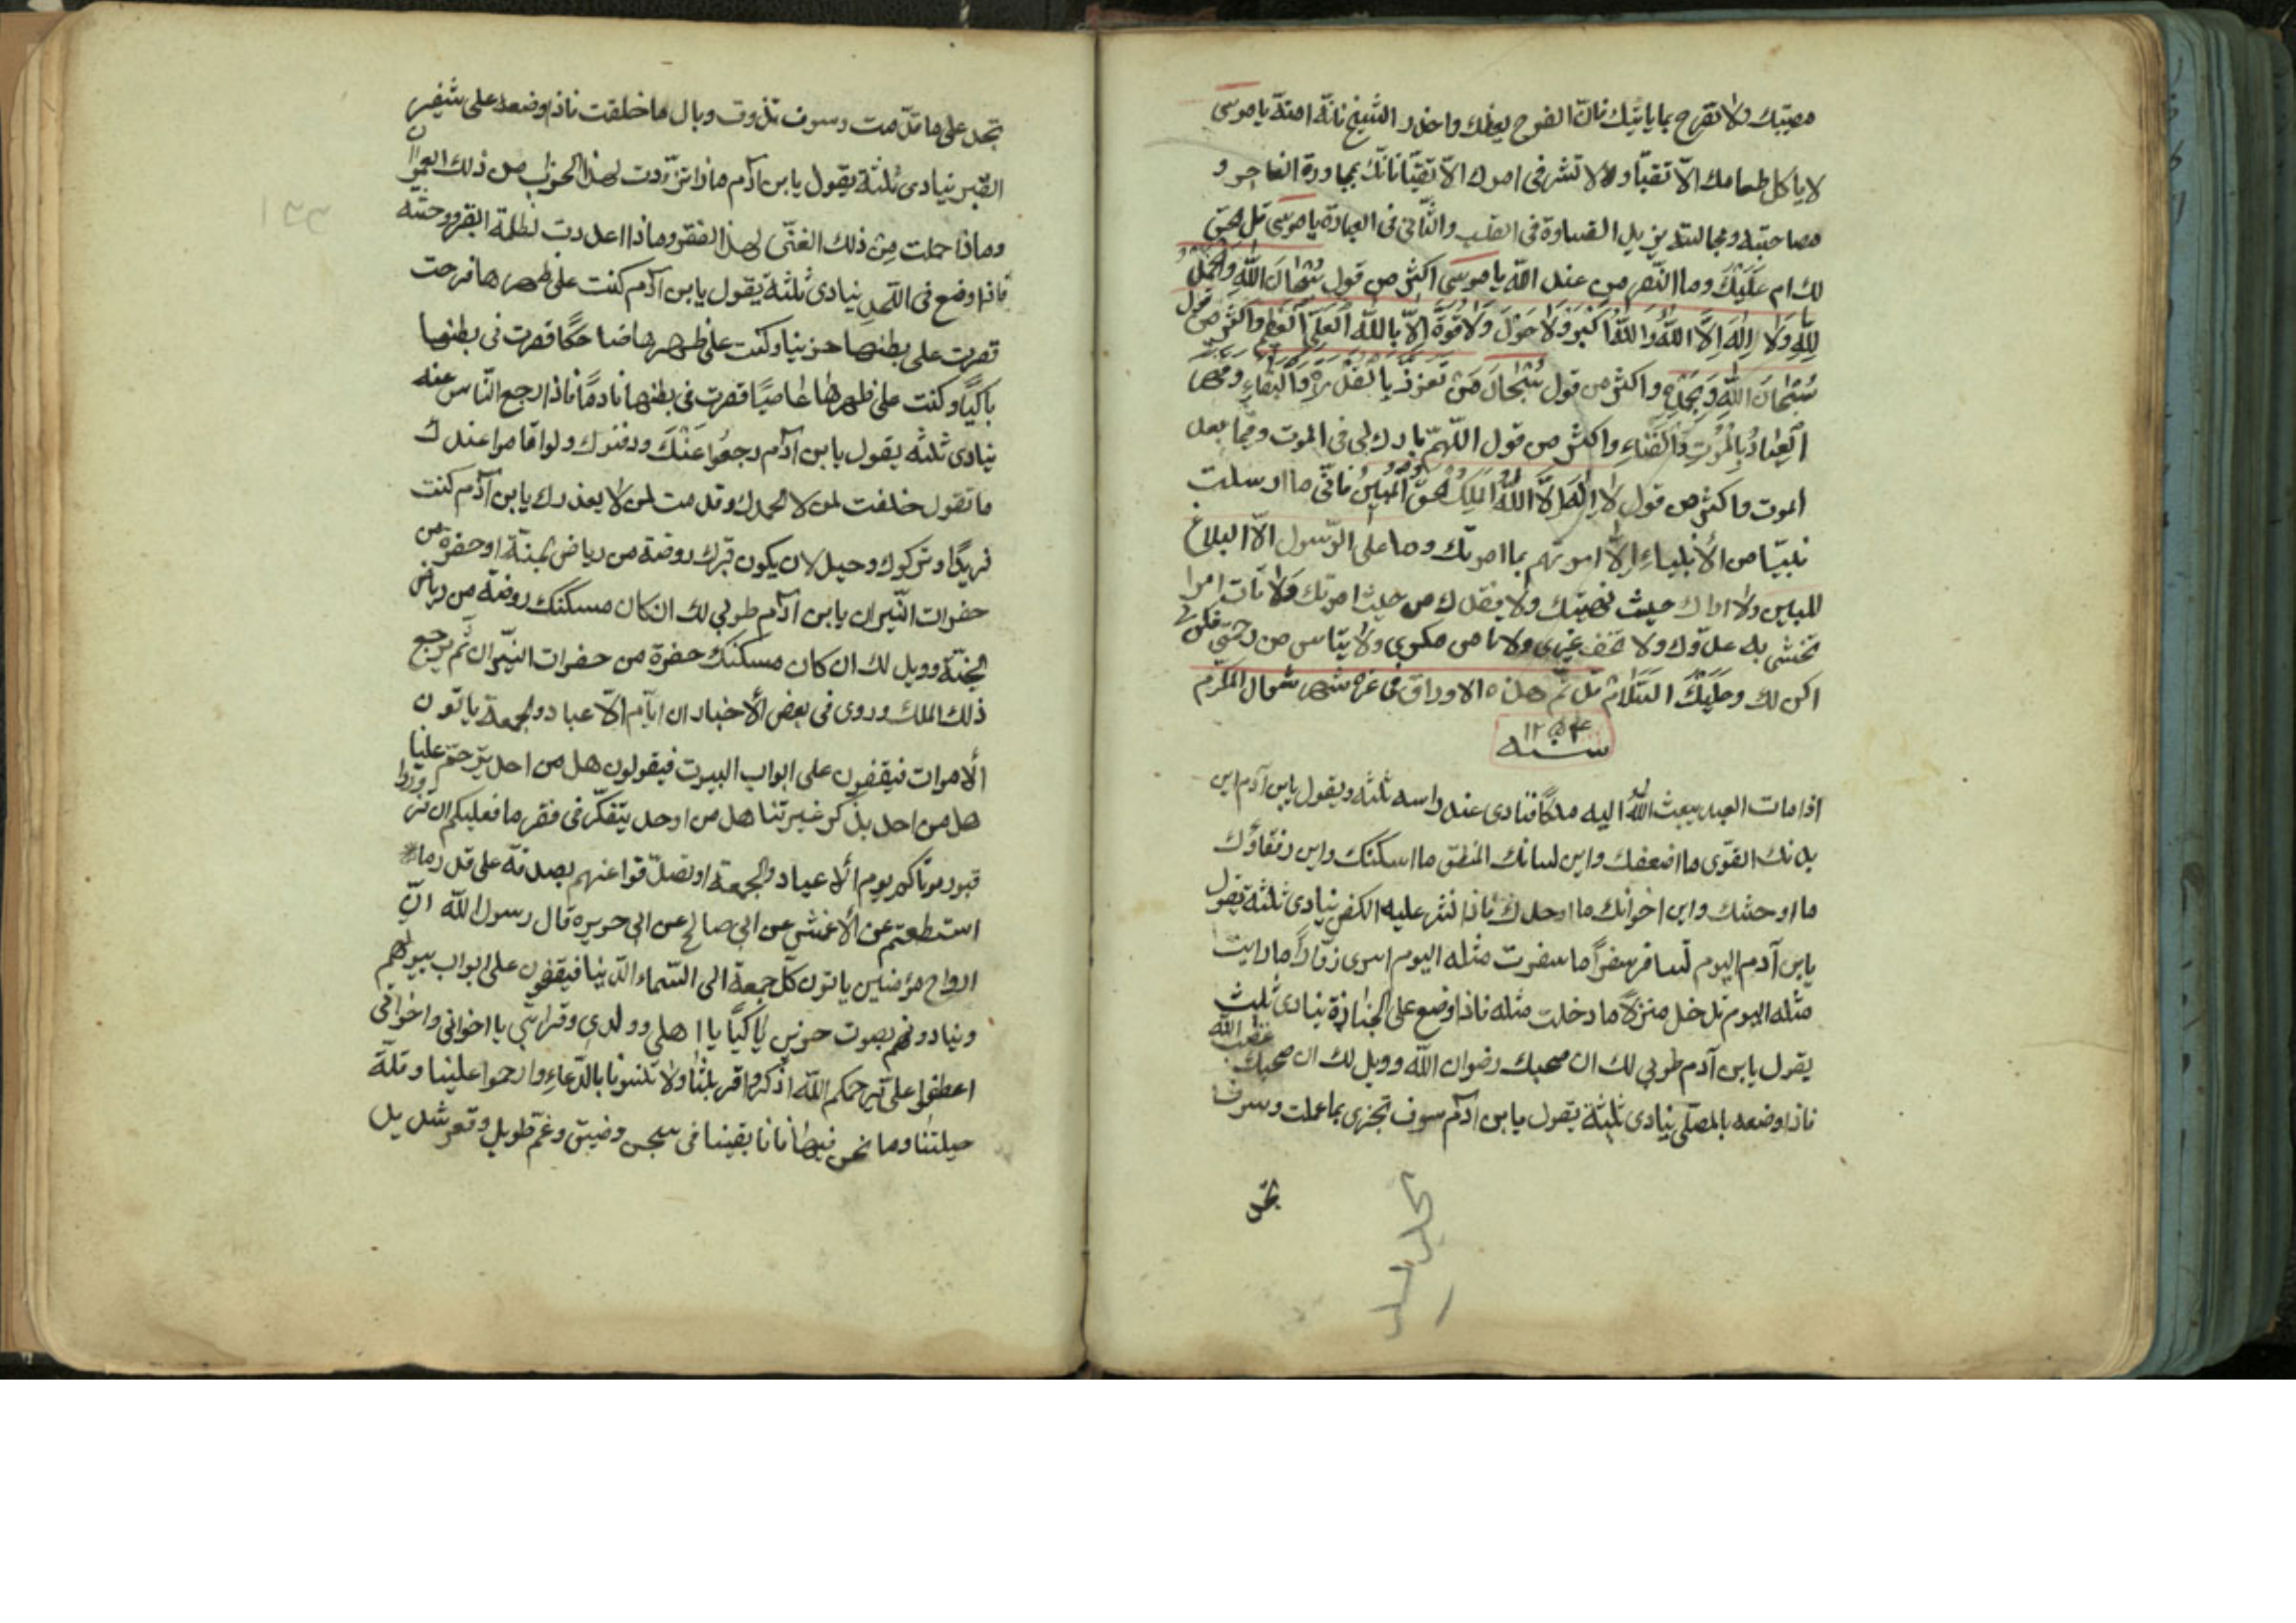 مصيبتك ولا تفرح بما ياتيك فانّ الفرح يعظك واحذر الشّيخ فانّه امنة يا موسى
لا ياكل طعامك الاّ تقيّا ولا تشر فى امرك الاّ تقيّا فانّك بمجاورة الفاجر و
مصاحبته ومجالسته يزيل القساوة فى القلب والثّانى فى العبادة يا موسى قل هق
لك ام عليك وما النّصر من عند الله يا موسى اكثر من قول سُبْحَانَ اللهِ وَالحَمْدُ
لِلّهِ وَلَا اِلهَ اِلاَّ اللهُ وَاللهُ اَكْبَرُ وَلَا حَوْلَ وَلَا قُوَّةَ اِلاّ بِاللهِ العَلِيِّ العَظِيمِ واكثر من قول
سُبْحَانَ اللهِ وَبِحَمْدِهِ واكثر من قول سُبْحَانَ مَنْ تَعَزَّزَ بِالقُدْرَةِ وَالبَقَاءِ وقهر
العِبَادَ بِالمَوْتِ وَالفَنَاءِ واكثر من قول اللّهمّ بارك لى فى الموت وفيما بعد
الموت واكثر من قول لا اِلَهَ اِلاَّ اللهُ المَلِكُ الحَقُّ المُبِينُ فانّى ما ارسلت
نبيّا من الأنبياءِ اِلاّ امرتهم بما امرتك وما على الرّسول الاّ البلاغ
المبين ولا اراك حيث نهيتك ولا يفقدك من حيث امرتك ولا تأت امرا
تخشى به عدوّك ولا تخف غيرى ولا تامن مكرى ولا يتاس من رحمتى فكن لى
اكن لك وعليك السّلام قد تمّ هذه الاوراق فى غره شهر شوال المكرّم
سنه
اذا مات العبد يبعث الله اليه ملكًا فنادى عند راسه ثلثه ويقول يابن آدم اين
بدنك القوّى ما اضعفك واين لسانك المنطق ما اسكنك واين رفقاؤك
ما اوحشك واين اخوانك ما اوحدك فاذا نشر عليه الكفن ينادى ثلثه يقول
يابن آدم اليوم تسافر سفرًا ما سفرت مثله اليوم اسرى زوّارًا ما رايت
مثله اليوم تدخل منزلا ما دخلت مثله فاذا وضع على الجنازة ينادى ثلث
يقول يابن آدم طوبى لك ان صحبك رضوان الله وويل لك ان صحبك غضب الله
فاذا وضعه بالمصلّى ينادى ثلثة يقول يابن ادم سوف تجزى بما عملت وسوف
تجد
تجد على ما قدّمت وسوف تذوق وبال ما خلقت فاذا وضعه على شفير
القبر ينادى ثلثة يقول يابن آدم ماذا تزّودت لهذا الخراب من ذلك العمران
وماذا حملت من ذلك الغنّى لهذا الفقر وماذا اعددت لظلمة القبر ووحشته
فاذا وضع فى اللّحد ينادى ثلثة يقول يابن آدم كنت على ظهرها فرحت
فصرت على بطنها حزينا وكنت على ظهرها ضاحكًا فصرت فى بطنها
باكيًا وكنت على ظهرها عاصيًا فصرت فى بطنها نادمًا فاذا رجع النّاس عنه
ينادى ثلثه يقول يابن آدم رجعُوا عنكَ ودفنوك ولو اقاموا عندك
ما تقول خلفت لمن لا يحمدك وقدمت لمن لا يعذرك يابن آدم كنت
فريدًا وتركوك وحيدا لان يكون قبرك روضة من رياض الجنّة او حفرة من
حفرات النّيران يابن ادم طوبى لك ان كان مسكنك روضة من رياض
الجنّة وويل لك ان كان مسكنك حفرة من حفرات النيّران ثمّ يرجع
ذلك الملك وروى فى بعض الأخبار ان ايّام الاعياد والجمعة ياتون
الاموات فيقفون على ابواب البيوت فيقولون هل من احد يترحّم علينا
هل من احد يذكر غيبرتنا هل من احد يتفكّر فى فقرنا فعليكم ان تزوروا
قبور موتاكم يوم الاعياد والجمعة او تصدّقوا عنهم بصدقة على قدر ما
استطعتم عن الأعمش عن ابى صالح عن ابى حريره قال رسول الله انّ
ارواح مؤمنين ياتون كلّ جمعة الى السّماء الدّنيا فيقفون على ابواب بيوتهم
وينادونهم بصوت حزين باكيًا يا اهلى وولدى وقرابتى يا اخوانى واخواتى
اعطفوا على يرحمكم الله اذكروا قربتنا ولا تنسونا بالدّعاءِ وارحموا علينا وقلّة
حيلتنا وما نحن فيها فانا بقينا فى سجن وضيق وغمّ طويل وقعر شديد